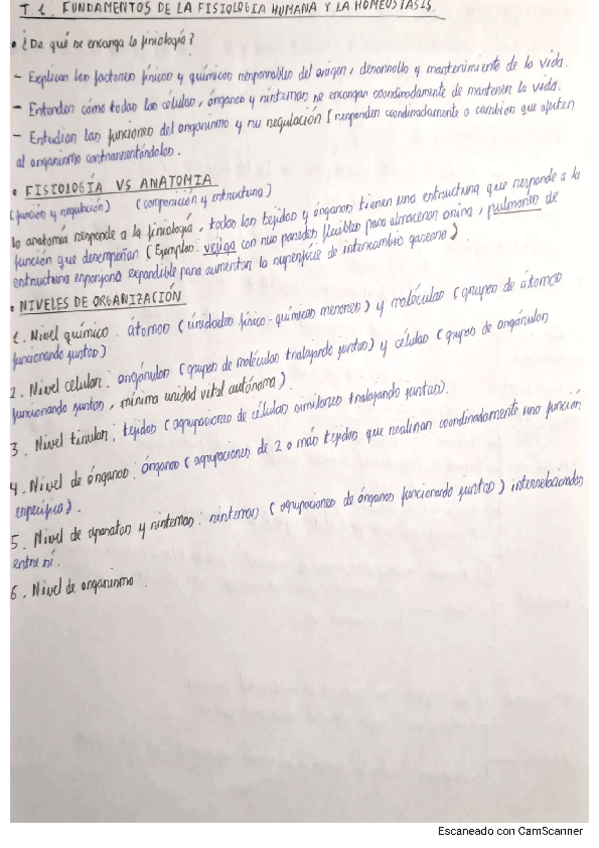 T.1. FUNDAMENTOS DE LA FISIOLOGÍA HUMANA Y LA HOMEOSTASIS.
• ¿De qué se encarga la fisiología?
- Explican los factores físicos y químicos responsables del origen, desarrollo y mantenimiento de la vida.
- Entender cómo todas las células, órganos y sistemas se encargan coordinadamente de mantener la vida.
- Estudian las funciones del organismo y su regulación (responden coordinadamente a cambios que afecten
al organismo contrarrestándolos.
• FISIOLOGÍA VS ANATOMIA
(función y regulación) (composición y estructura)
la anatomía responde a la fisiología, todos los tejidos y órganos tienen una estructura que responde a la
función que desempeñan (Ejemplos: vejiga con sus paredes flexibles para almacenar orina, pulmones de
estructura esponjosa expandible para aumentar la superficie de intercambio gaseoso)
• NIVELES DE ORGANIZACIÓN
1. Nivel químico: átomos (unidades físico-químicas menores) y moléculas (grupos de átomos
funcionando juntos)
2. Nivel celular: orgánulos (grupos de moléculas trabajando juntas) y células (grupos de orgánulos
funcionando juntos, mínima unidad vital autónoma).
3. Nivel tisular: tejidos (agrupaciones de células similares trabajando juntas).
4. Nivel de órganos: órganos (agrupaciones de 2 o más tejidos que realizan coordinadamente una función
específica).
5. Nivel de aparatos y sistemas: sistemas (agrupaciones de órganos funcionando juntos) interrelacionados
entre sí.
6. Nivel de organismo
Escaneado con CamScanner